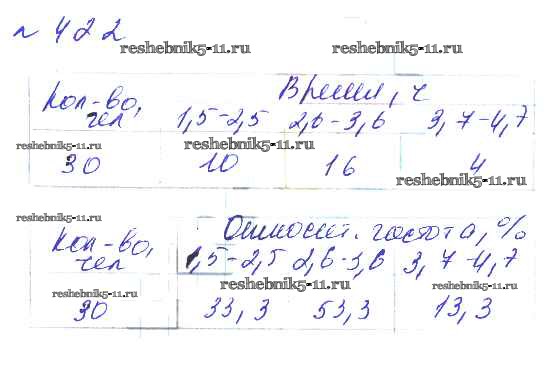 № 422
reshebnik5-11.ru reshebnik5-11.ru
Кол-во, Время, ч
чел 1,5-2,5 2,6-3,6 3,7-4,7
reshebnik5-11.ru reshebnik5-11.ru
30 10 16 4
reshebnik5-11.ru
reshebnik5-11.ru
Кол-во, Относит. частота, %
чел 1,5-2,5 2,6-3,6 3,7-4,7
reshebnik5-11.ru
reshebnik5-11.ru reshebnik5-11.ru
30 33,3 53,3 13,3